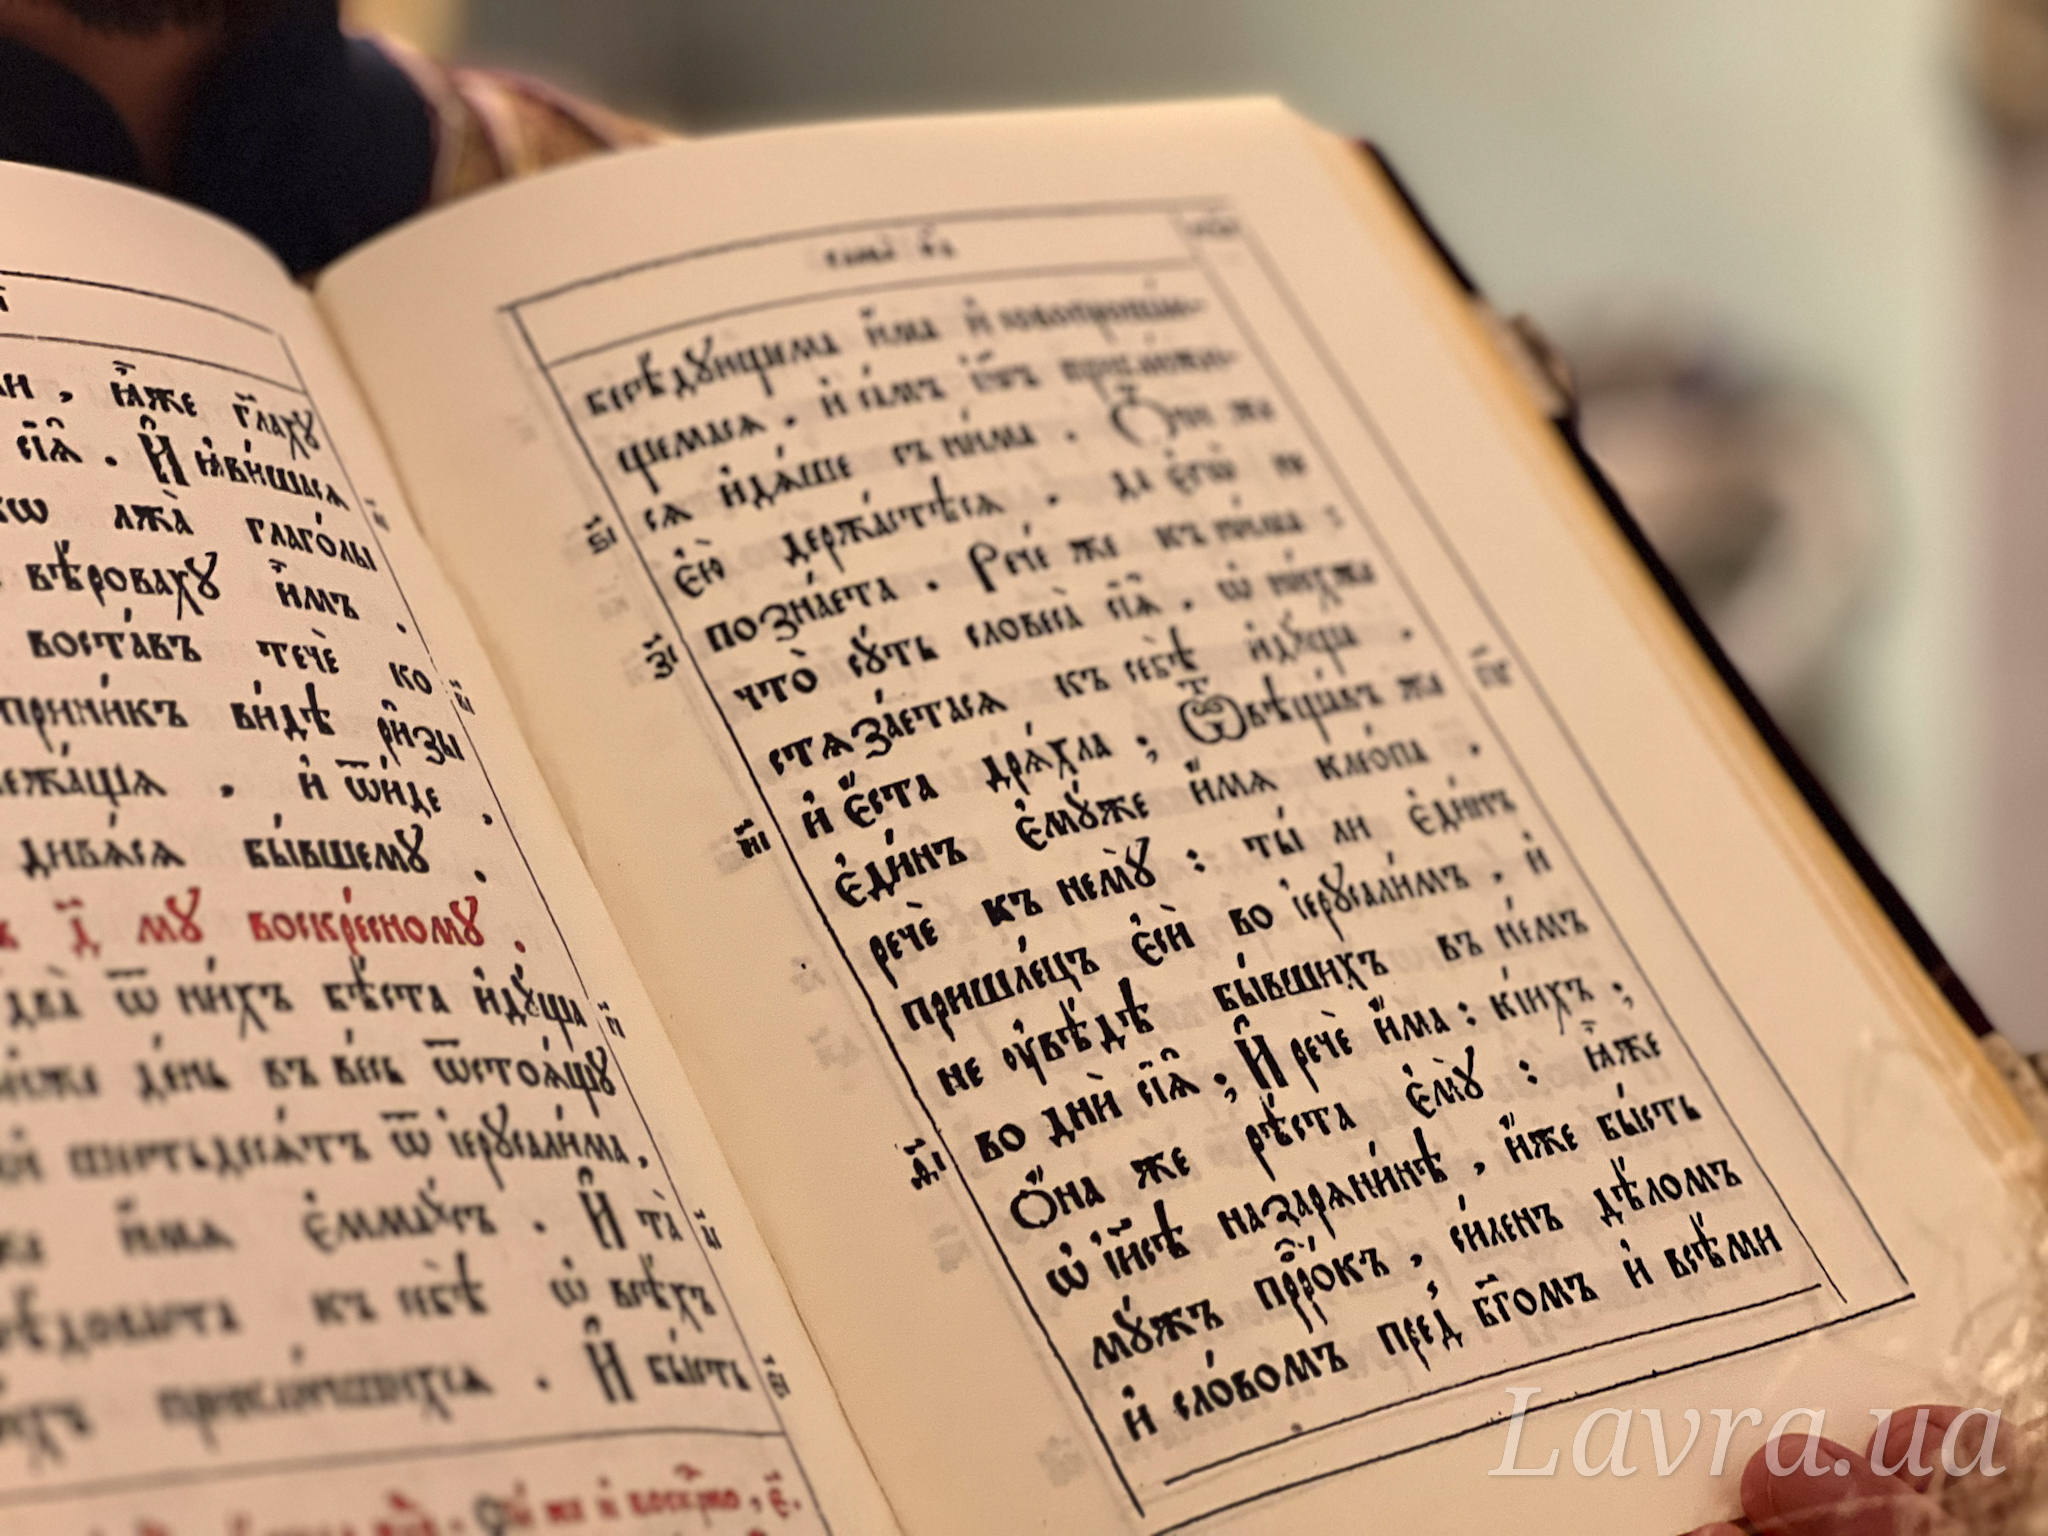 , ꙗ҆̀же гл҃аху
сїѧ̑ . И҆ ꙗ҆ви́шасѧ
лжа̀ глаго́лы
вѣ́роваху и҆̀мъ .
воста́въ течѐ ко
прини́къ ви́дѣ ри̑зы
лежа́щыѧ , и҆ ѿи́де ,
дивѧ́сѧ бы́вшему ,
д҃ му воскре́сному .
два̀ ѿ ни́хъ бѣ́ста и҆ду̑ща
де́нь въ ве́сь ѿстоѧ́щу
шестьдесѧ́тъ ѿ і҆ерусали́ма ,
и҆́мѧ є҆мма́усъ . И҆ та̑
къ себѣ̀ ѡ҆ всѣ́хъ
приклю́чшихсѧ . И҆ бы́сть
глава̀ к҃д
бесѣ́дующема и҆́ма и҆ совопроша́ю-
щемасѧ , и҆ са́мъ і҆и҃съ прибли́жи-
сѧ и҆дѧ́ше съ ни́ма . Ѻ҆́чи же
ѕ҃і є҆ю̀ держа́стѣсѧ , да є҆гѡ̀ не
позна́ета . Рече́ же къ ни́ма :
з҃і что̀ су́ть словеса̀ сїѧ̑ , ѡ҆ ни́хже
стѧза́етасѧ къ себѣ̀ и҆ду̑ща ,
и҆ є҆ста̀ дрѧ̑хла ; Ѿвѣща́въ же
и҃і є҆ди́нъ є҆му́же и҆́мѧ клео́па ,
речѐ къ нему̀ : ты́ ли є҆ди́нъ
пришле́цъ є҆сѝ во і҆ерусали́мъ , и҆
не ᲂу҆вѣ́дѣ бы́вшихъ въ не́мъ
во дни̑ сїѧ̑ ; И҆ речѐ и҆́ма : кі́ихъ ;
д҃і Ѻ҆́на же рѣ́ста є҆му̀ : ꙗ҆̀же
ѡ҆ і҆и҃сѣ назарѧни́нѣ , и҆́же бы́сть
му́жъ прⷪ҇ро́къ , си́ленъ дѣ́ломъ
и҆ сло́вомъ пред̾ бг҃омъ и҆ всѣ́ми
Lavra.ua